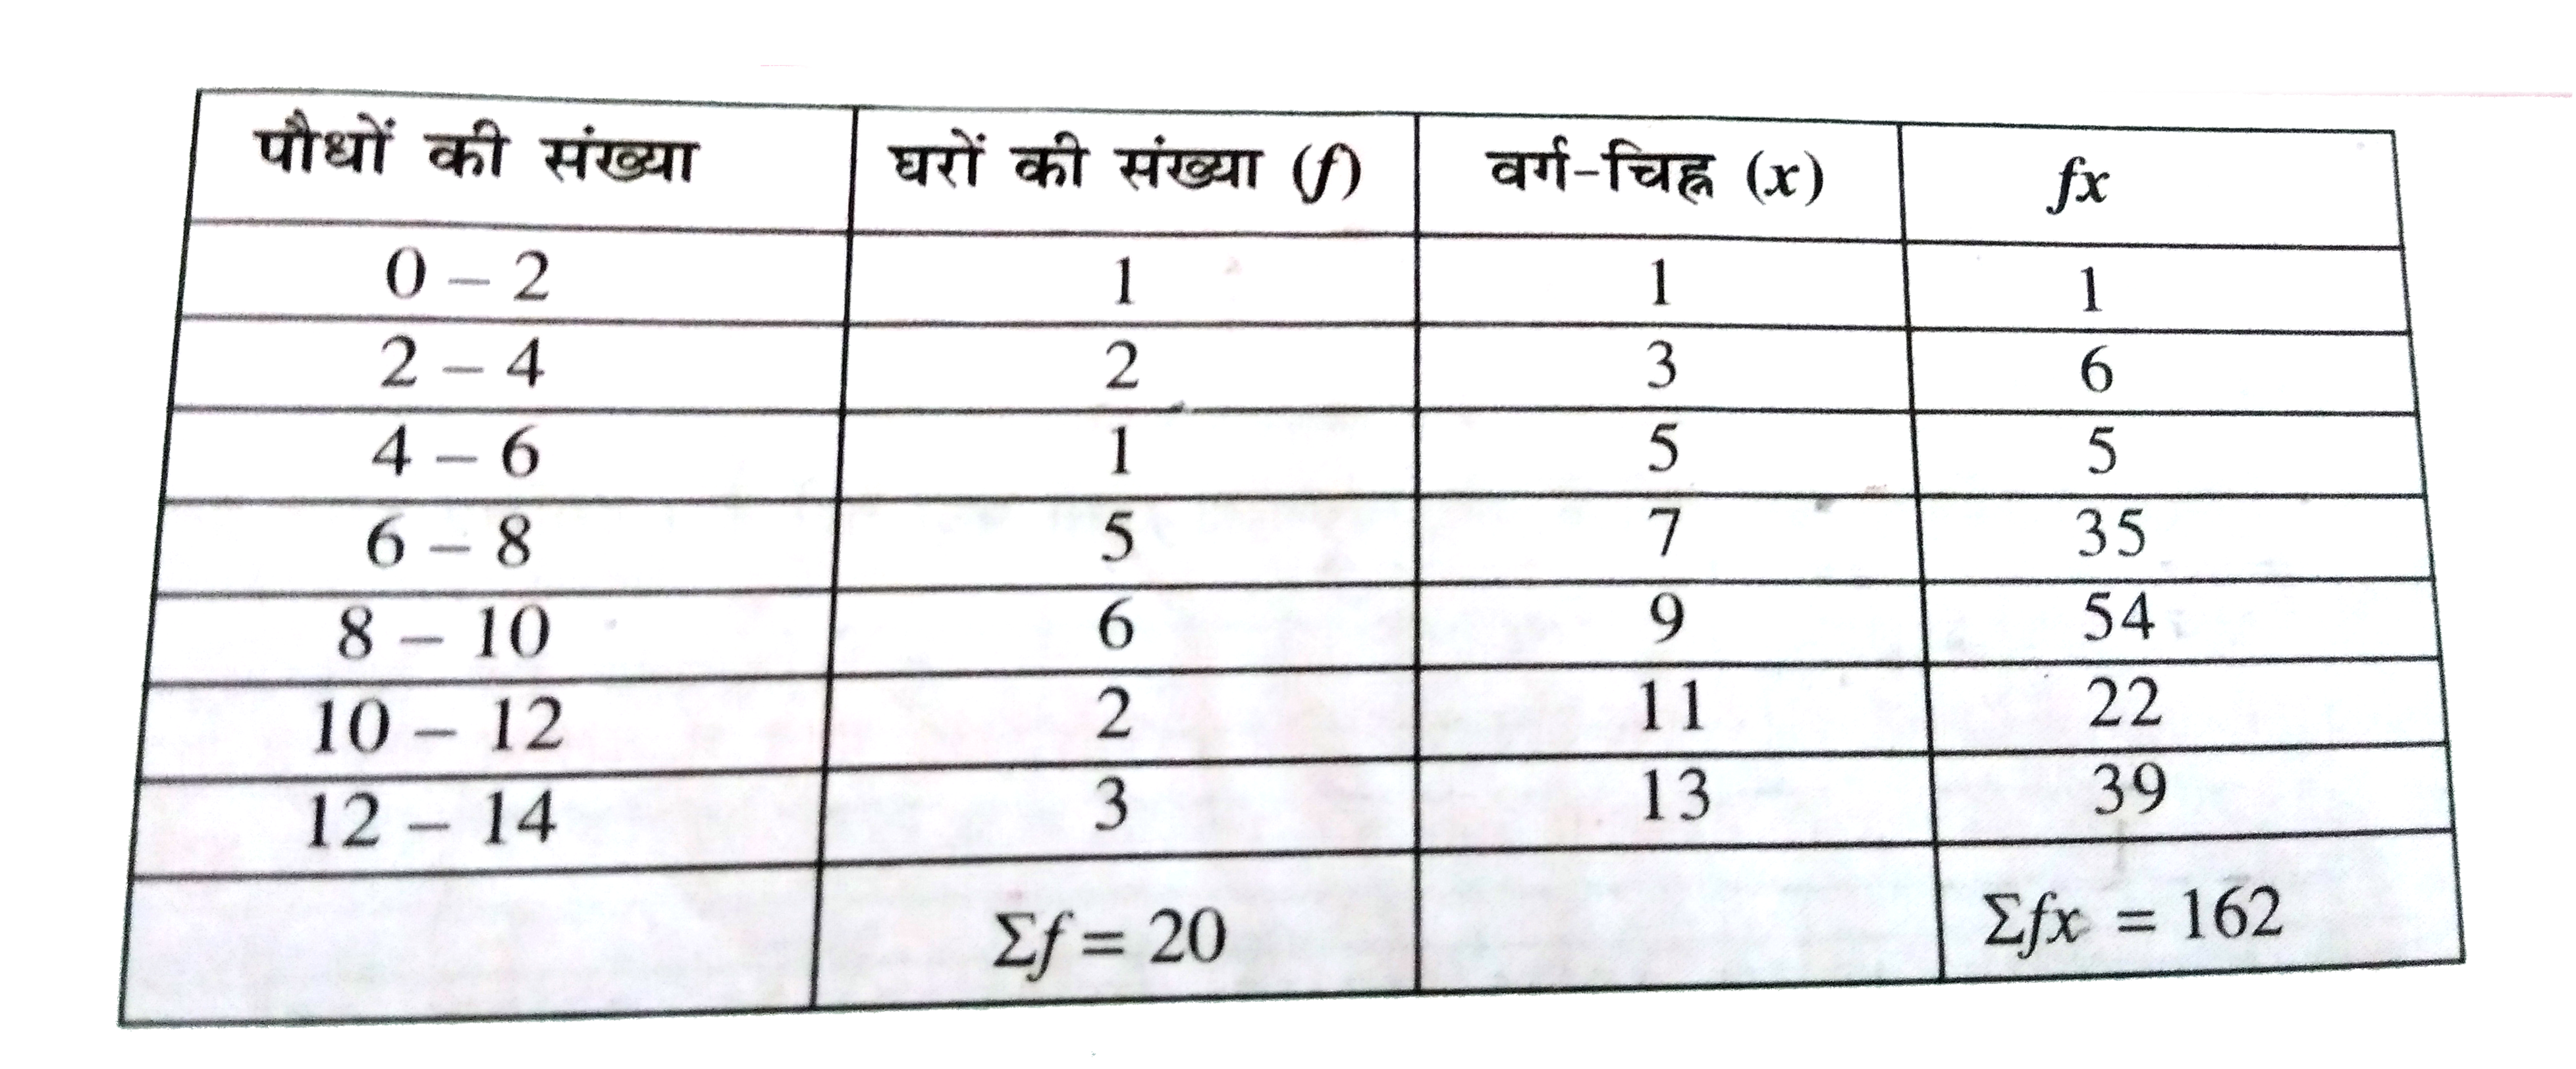 पौधों की संख्या घरों की संख्या (f) वर्ग-चिह्न (x) fx
0 – 2 1 1 1
2 – 4 2 3 6
4 – 6 1 5 5
6 – 8 5 7 35
8 – 10 6 9 54
10 – 12 2 11 22
12 – 14 3 13 39
Σf = 20 Σfx = 162